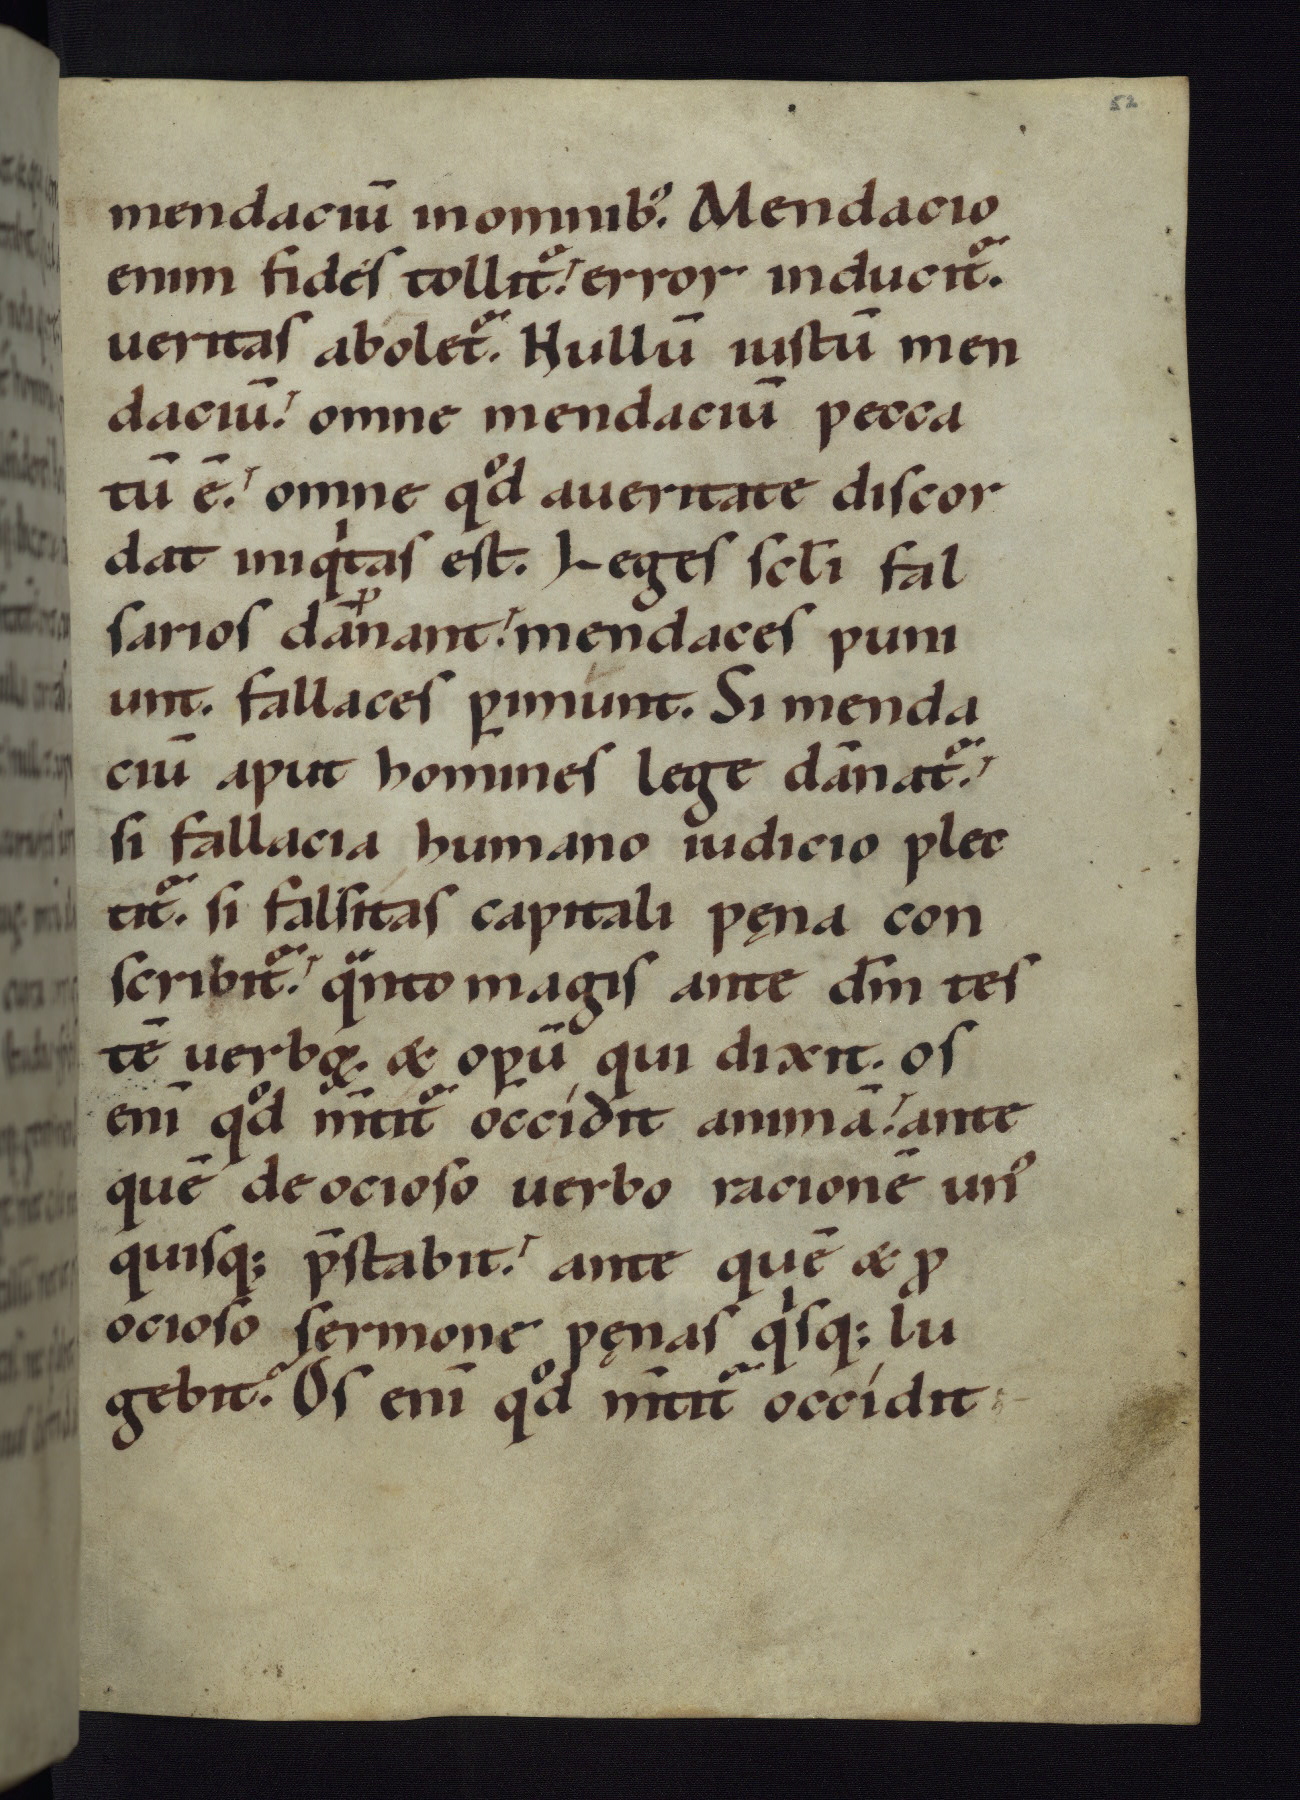 52
mendaciū in omnibꝰ. Mendacio
enim fides tollit᷑. error inducit᷑.
ueritas abolet᷑. Nullū iustū men
daciū. omne mendaciū pecca
tū ē. omne qͦd aueritate discor
dat iniqͥtas est. Leges scłi fal
sarios dāp̄nant. mendaces puni
unt. fallaces ꝑimunt. Si menda
ciū aput homines lege dānat᷑.
si fallacia humano iudicio plec
tit᷑. si falsitas capitali pęna con
scribit᷑. qͣnto magis ante dm̄ tes
tē uerboꝝ. & oꝑū qui dixit. os
enī qͦd m̄tit᷑ occidit animā. ante
quē de ocioso uerbo racionē unꝰ
quisq; p̄stabit. ante quē & ꝓ
ocioso sermone pęnas qͥsq; lu
gebit. Os enī qͦd m̄tit᷑ occidit